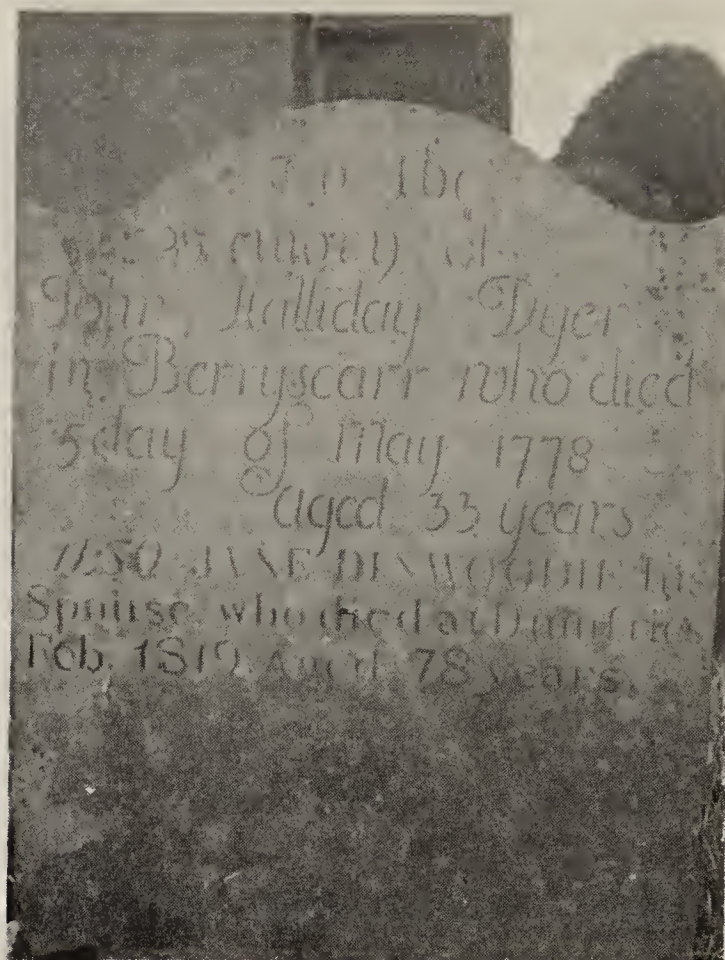 To the
Memory of
John Halliday Dyer
in Berryscarr who died
5 day of May 1778
Aged 33 years
ALSO JANE DINWOODIE his
Spouse who died at Dumfries
Feb. 1819 Aged 78 years.